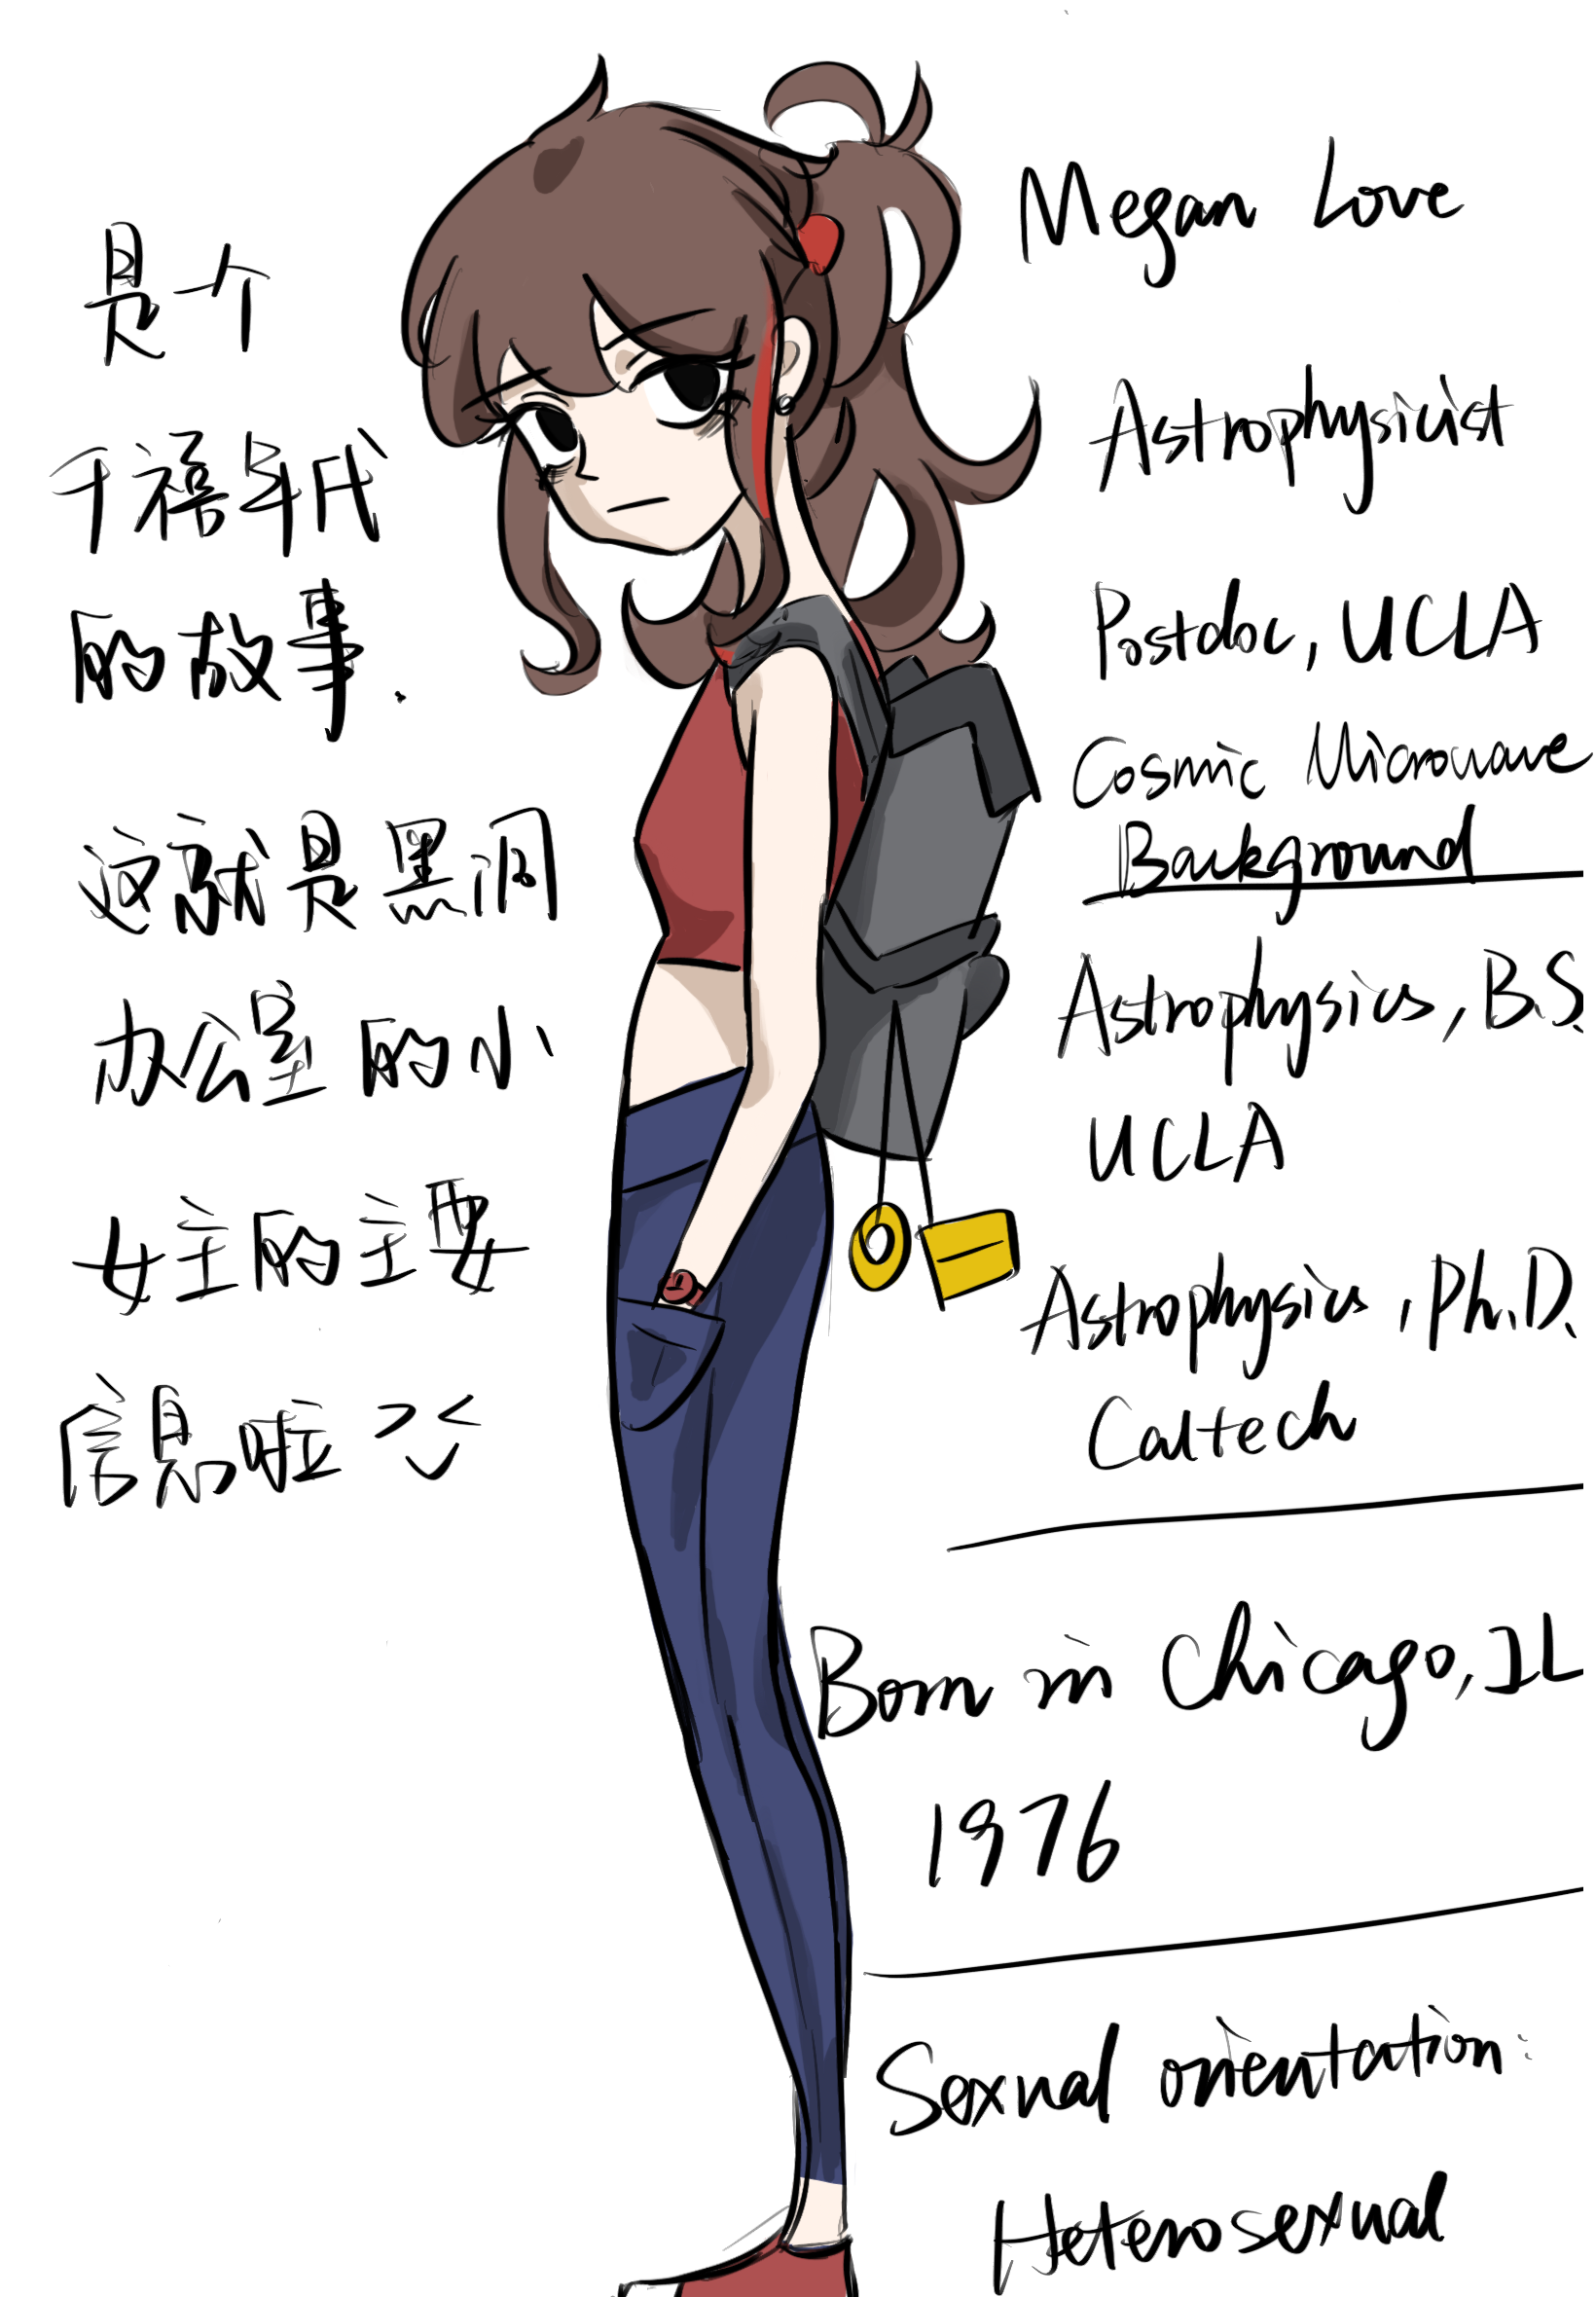 是个
千禧年代
的故事.
这就是黑洞
办公室的小
女主的主要
信息啦
Megan Love
Astrophysicist
Postdoc, UCLA
Cosmic Microwave
Background
Astrophysics, B.S.
UCLA
Astrophysics, Ph.D.
Caltech
Born in Chicago, IL
1976
Sexual orientation:
Heterosexual